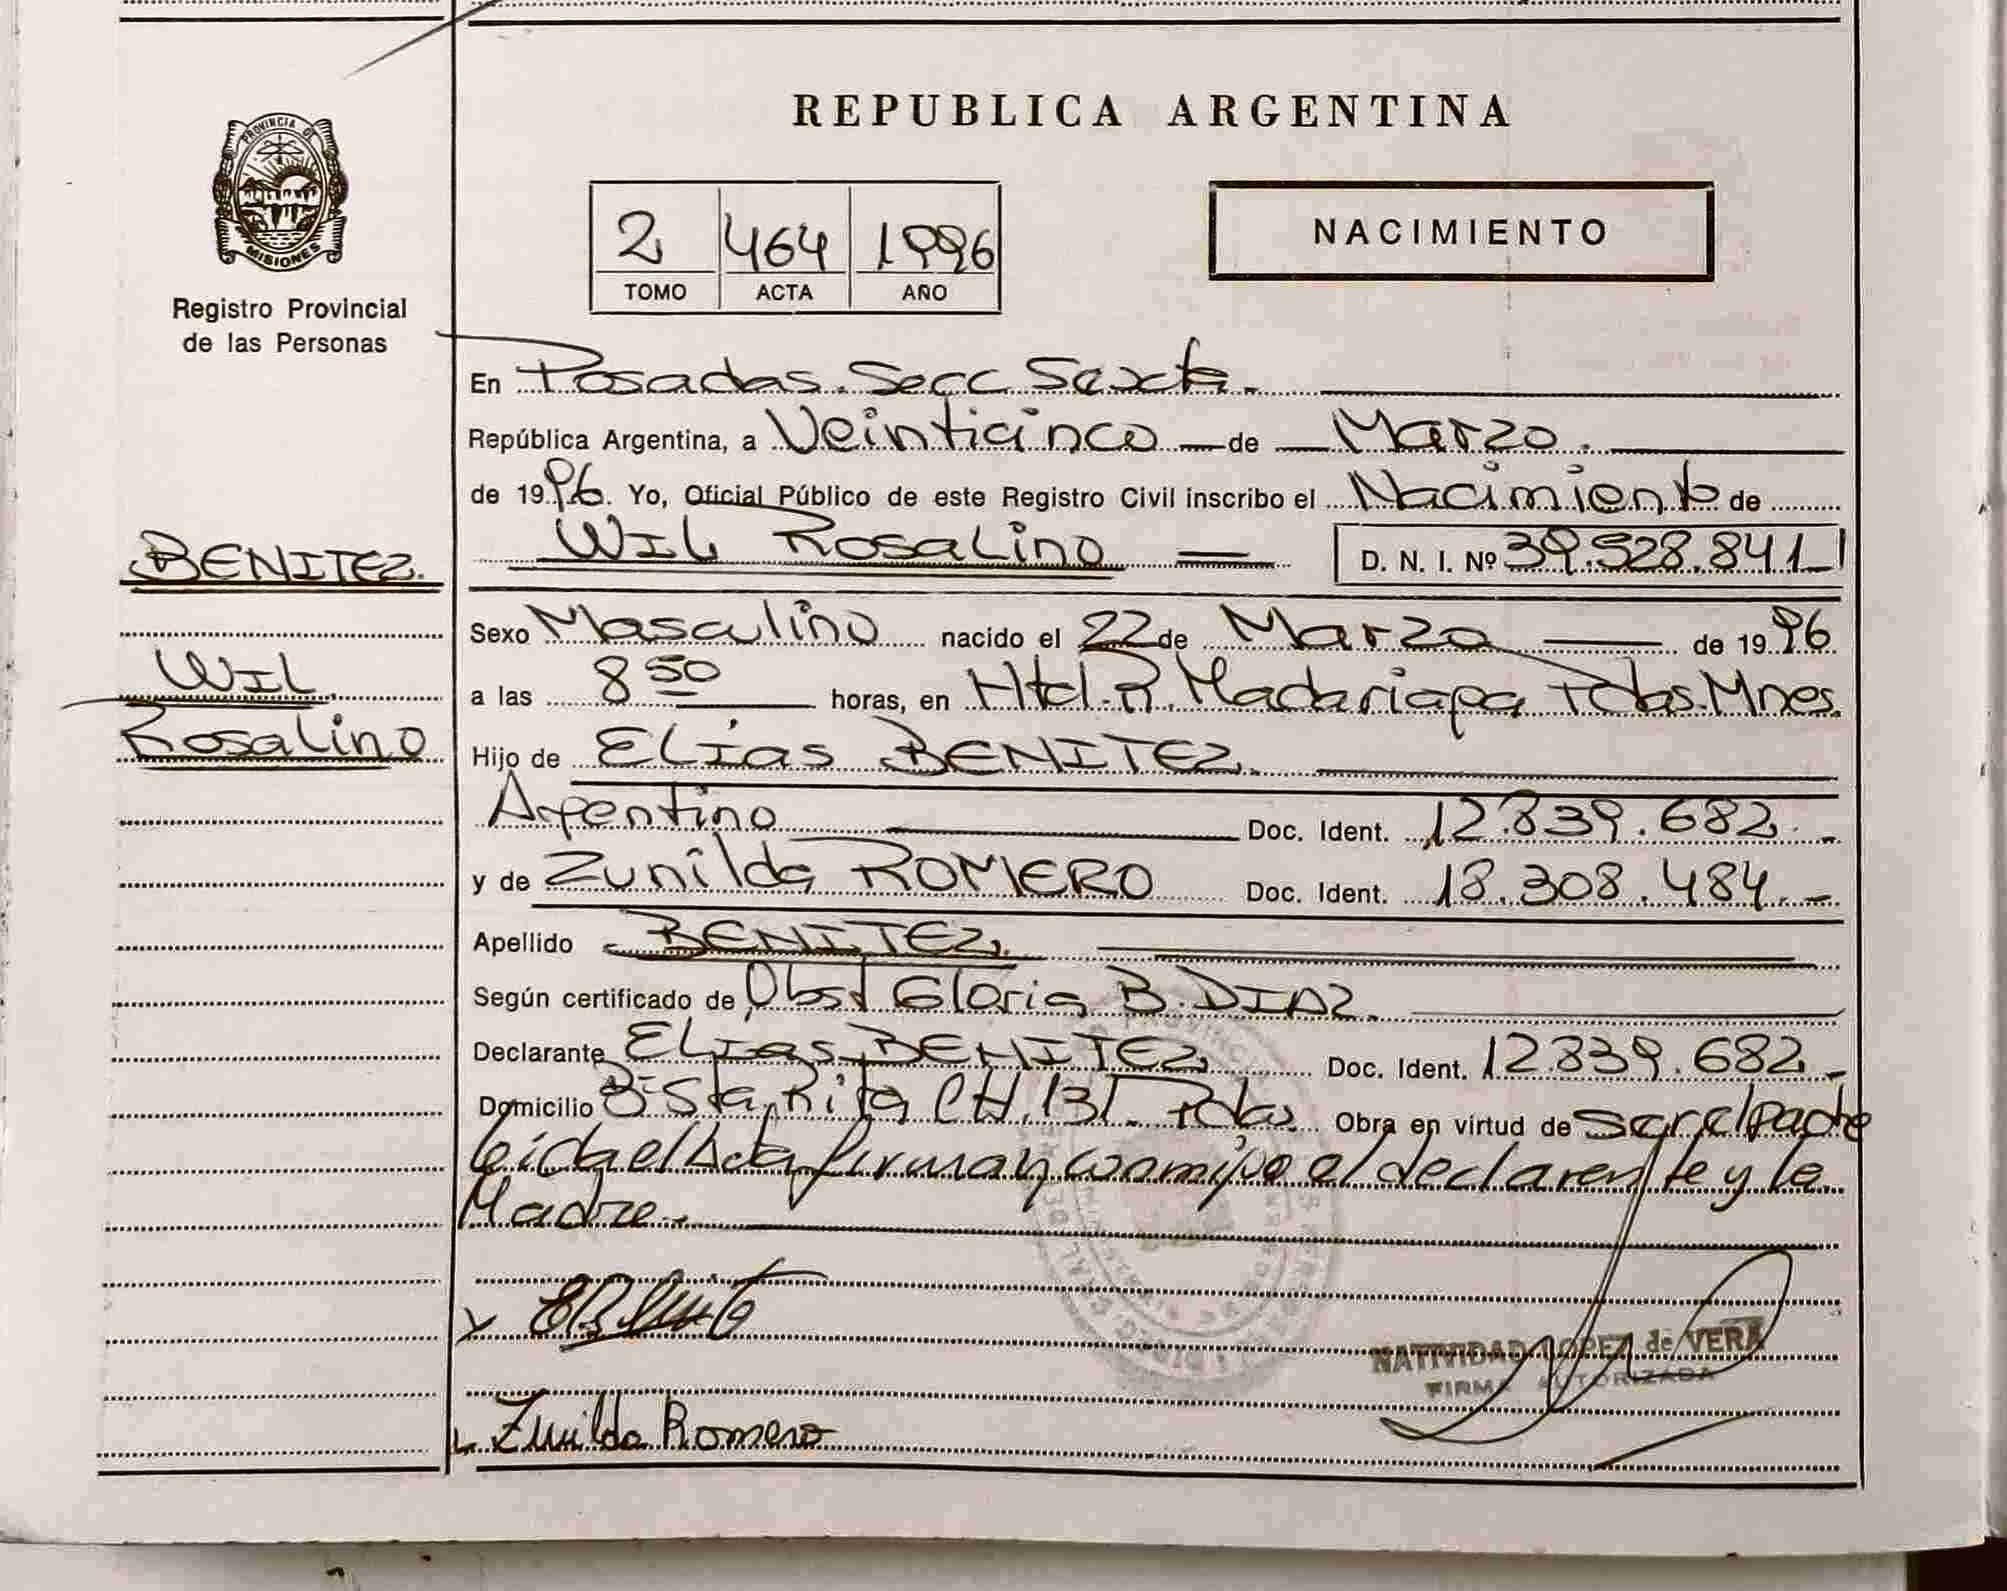 REPUBLICA ARGENTINA
PROVINCIA DE
MISIONES
Registro Provincial
de las Personas
2 464 1996
TOMO ACTA AÑO
NACIMIENTO
En Posadas. Secc Sexta.
República Argentina, a Veinticinco de Marzo.
de 1996. Yo, Oficial Público de este Registro Civil inscribo el Nacimiento de
BENITEZ.
Wil Rosalino D. N. I. Nº 39.528.841
Sexo Masculino nacido el 22 de Marzo de 1996
Wil
a las 8 50 horas, en Htal. R. Madariaga Pdas. Mnes.
Rosalino
Hijo de Elías BENITEZ.
Argentino Doc. Ident. 12.839.682.-
y de Zunilda ROMERO Doc. Ident. 18.308.484.-
Apellido BENITEZ.
Según certificado de Obst Gloria B. DIAZ.
Declarante Elias BENITEZ Doc. Ident. 12.839.682.-
Domicilio Bº Sta. Rita CH. 131. Pdas. Obra en virtud de ser el padre
leida el Acta firman conmigo el declarante y la
Madre.-
NATIVIDAD LOPEZ de VERA
FIRMA AUTORIZADA
Zunilda Romero